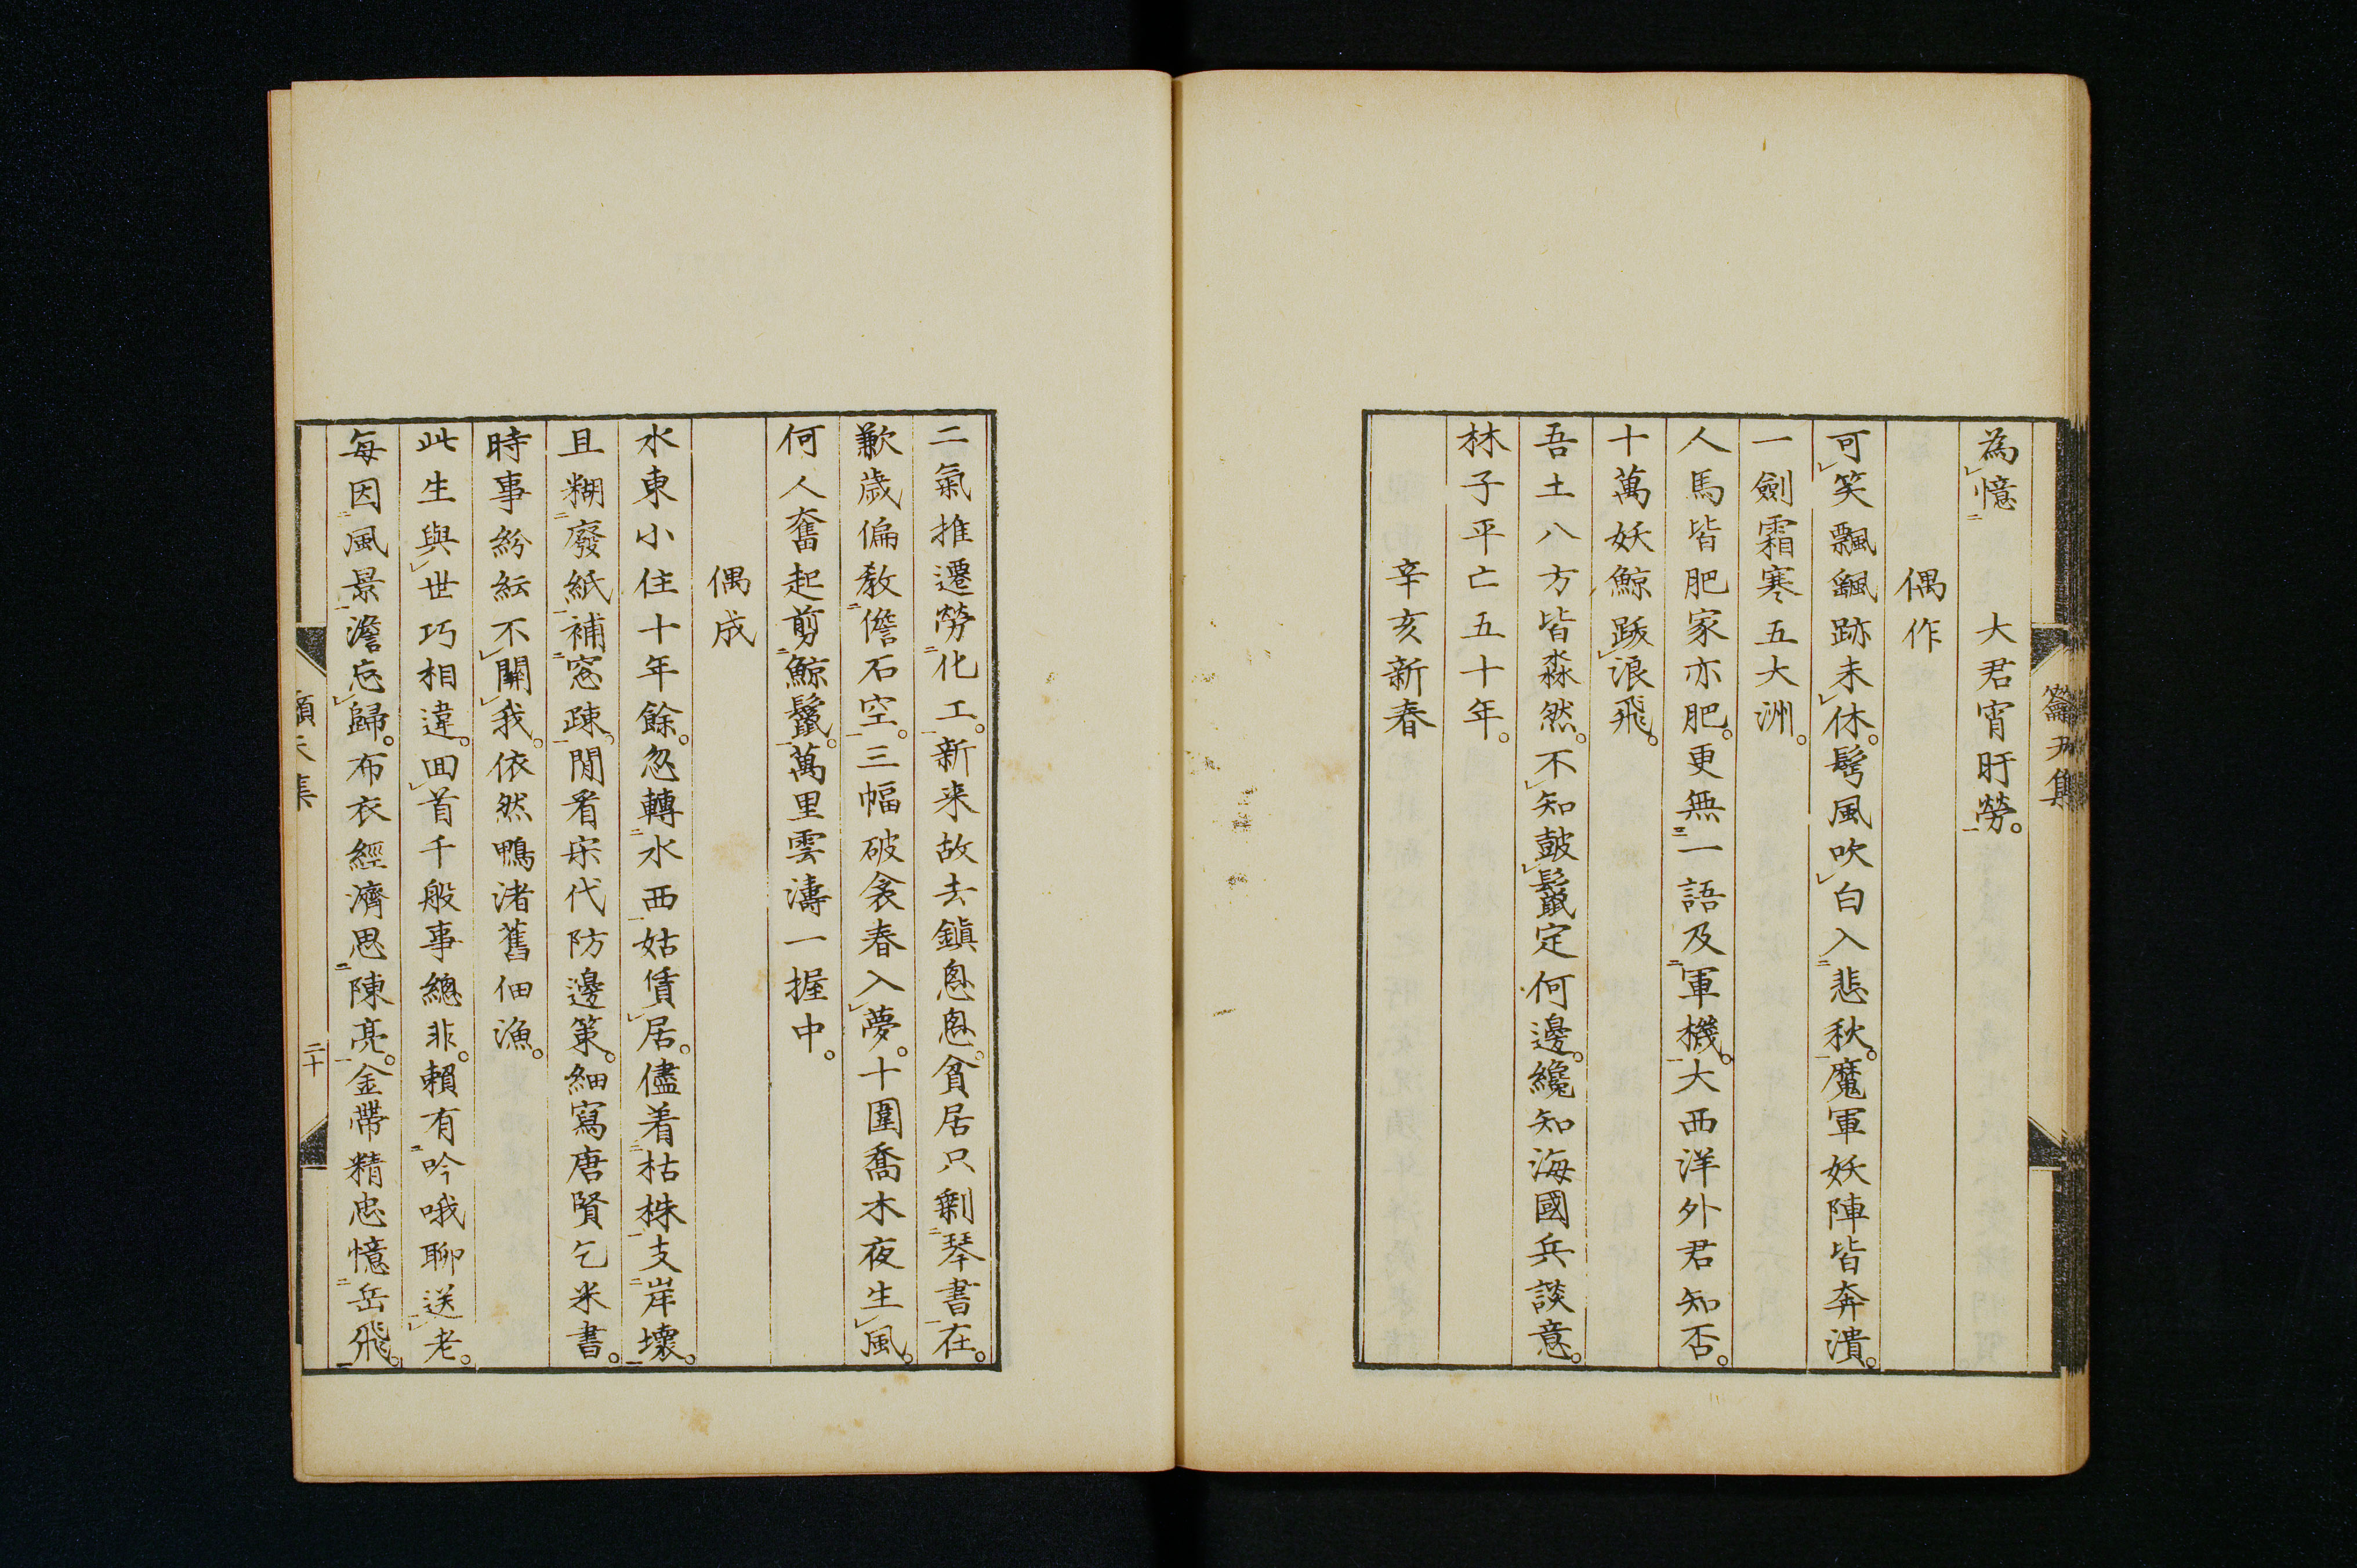 為憶 大君宵旰勞。
偶作
可笑飄颻跡未休。髩風吹白入悲秋。魔軍妖陣皆奔潰。
一劍霜寒五大洲。
人馬皆肥家亦肥。更無一語及軍機。大西洋外君知否。
十萬妖鯨跋浪飛。
吾土八方皆淼然。不知皷鬣定何邊。纔知海國兵談意。
林子平亡五十年。
辛亥新春
二氣推遷勞化工。新来故去鎮悤悤。貧居只剩琴書在。
歉歲偏教儋石空。三幅破衾春入夢。十圍喬木夜生風。
何人奮起剪鯨鬣。萬里雲濤一握中。
偶成
水東小住十年餘。忽轉水西姑賃居。儘着枯株支岸壞。
且糊廢紙補窓踈。閒看宋代防邊策。細寫唐賢乞米書。
時事紛紜不關我。依然鴨渚舊佃漁。
此生與世巧相違。回首千般事總非。賴有吟哦聊送老。
每因風景澹忘歸。布衣經濟思陳亮。金帶精忠憶岳飛。
二十